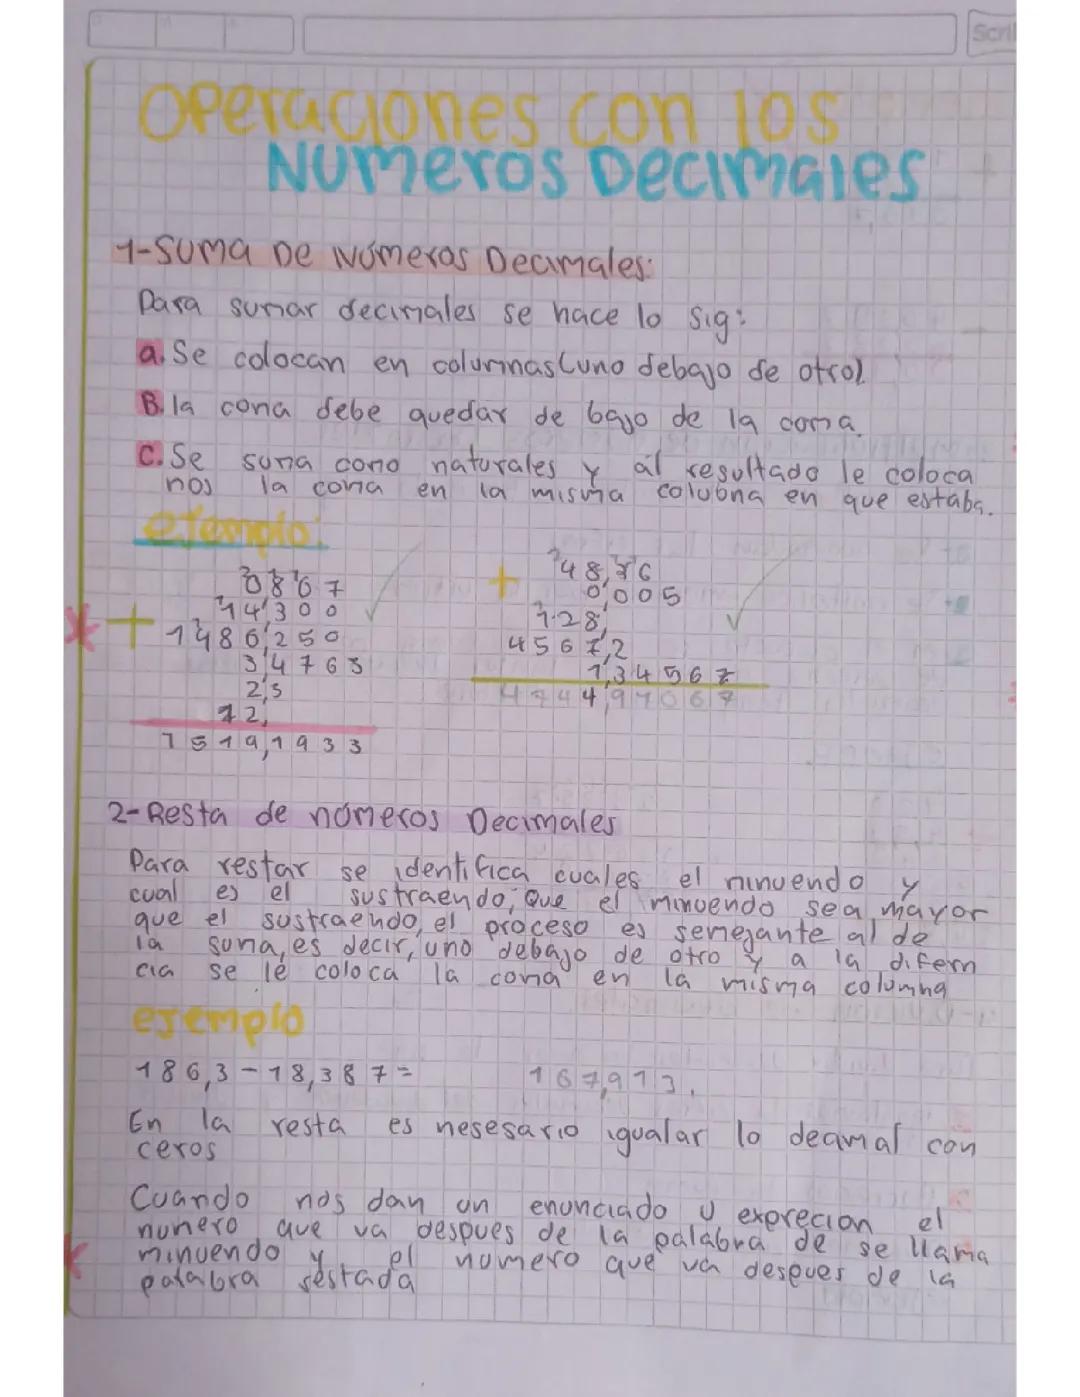 Scri
Operaciones con los
Numeros Decimales
1-Suma De Números Decimales:
Para sumar decimales se hace lo sig:
a. Se colocan en columnas (uno debajo de otro)
B. la coma debe quedar de bajo de la coma.
C. Se suma como naturales y al resultado le coloca
nos la coma en la misma colubna en que estaba.
ejemplo:
0,867
14,300
+ 1486,250
3,4763
2,3
12,
1519,1933
+ 48,36
0,005
128,
4567,2
1,34567
4744,91067
2-Resta de números Decimales
Para restar se identifica cuales el minuendo y
cual es el sustraendo, Que el minuendo sea mayor
que el sustraendo, el proceso es semejante al de
la suma, es decir, uno debajo de otro y a la difern
cia se le coloca la coma en la misma columna
ejemplo
186,3-18,387= 167,913.
En la resta es nesesario igualar lo decimal con
ceros
Cuando nos dan un enunciado u exprecion el
numero que va despues de la palabra de se llama
minuendo y el numero que va despues de la
palabra restada